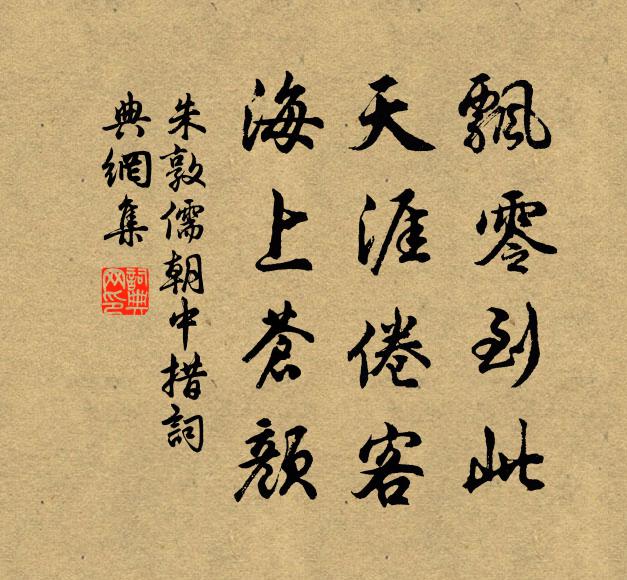 飄零到此
天涯倦客
海上蒼顏
朱敦儒朝中措詞
典網集
詞典
网印